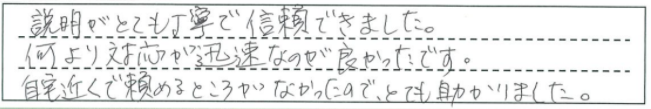 説明がとても丁寧で信頼できました。
何より対応が迅速なのが良かったです。
自宅近くで頼めるところがなかったので、とても助かりました。